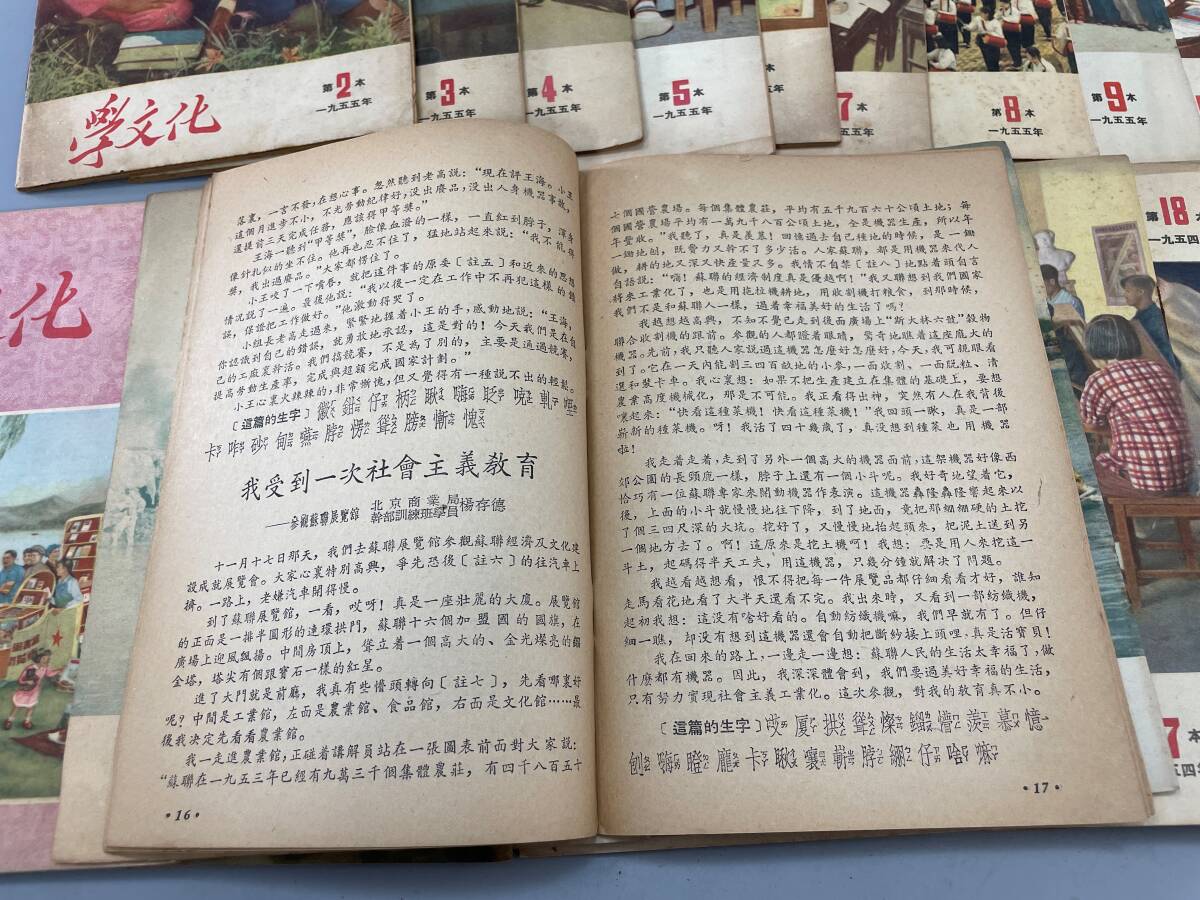 學文化
第2本
一九五五年
第3本
一九五五年
第4本
一九五五年
第5本
一九五五年
本
7本
五五年
第8本
一九五五年
第9本
一九五五年
第18本
一九五四
7本
五四年
文化
落裏,一言不發,在想心事。忽然聽到老高說:“現在評王海。小王
這個月進步不小,不光勞動紀律好,没出廢品,没出人身機器事故,
還提前三天完成任務,應該得甲等獎。”
王海一聽到“甲等獎”,臉像血潑的一樣,一直紅到脖子,渾身
像針扎似的坐不住。他再也忍不住了,猛地站起來說:“我不能得
獎,我出過廢品。”大家都愣住了。
小王咬了一下嘴唇,就把這件事的原委〔註五〕和近來的思想
情况說了一遍。最後他說:“我以後一定在工作中不再犯這樣的錯
誤,保證把工作做好。”他激動得哭了。
小組長老高走過來,緊緊地握着小王的手,感動地說:“王海,
你認識到自己的錯誤,就勇敢地承認,這是對的!今天我們是在自
己的工廠裏幹活。我們搞競賽,不是為了别的,主要是通過競賽,
提高勞動生產率,完成與超額完成國家計劃。”
小王心裏火辣辣的,非常慚愧,但又覺得有一種說不出的輕鬆。
〔這篇的生字〕
卡 咋 砂 甸 燕 脖 愣 聳 膀 慚 愧
我受到一次社會主義教育
——參觀蘇聯展覽館
北京商業局
幹部訓練班學員
楊存德
十一月十七日那天,我們去蘇聯展覽館參觀蘇聯經濟及文化建
設成就展覽會。大家心裏特别高興,爭先恐後〔註六〕的往汽車上
擠。一路上,老嫌汽車開得慢。
到了蘇聯展覽館,一看,哎呀!真是一座壯麗的大廈。展覽館
的正面是一排半圓形的連環拱門,蘇聯十六個加盟國的國旗,在
廣場上迎風飄揚。中間房頂上,聳立着一個高大的、金光燦亮的鎦
金塔,塔尖有個跟寶石一樣的紅星。
進了大門就是前廳,我真有些懵頭轉向〔註七〕,先看哪裏好
呢?中間是工業館,左面是農業館、食品館,右面是文化館……最
後我决定先看看農業館。
我一走進農業館,正碰着講解員站在一張圖表前面對大家說:
“蘇聯在一九五三年已經有九萬三千個集體農莊,有四千八百五十
·16·
七個國營農場。每個集體農莊,平均有五千九百六十公頃土地;每
個國營農場平均有一萬九千八百公頃土地,全是機器生產,所以年
年豐收。”我聽了,真是羨慕!回憶過去自己種地的時候,是一鋤
一鋤地刨,既費力又幹不了多少活。人家蘇聯,都是用機器來代人
做,耕的地又深又快產量又多。我情不自禁〔註八〕地點着頭自言
自語說:“嗨!蘇聯的經濟制度真是優越啊!”我又聯想到我們國家
將來工業化了,也是用拖拉機耕地,用收割機打糧食,到那時候,
我們不是和蘇聯人一樣,過着幸福美好的生活了嗎?
我越想越高興,不知不覺已走到後面廣場上“斯大林六號”穀物
聯合收割機的跟前。參觀的人都瞪着眼睛,驚奇地瞧着這座龐大的
機器。先前,我只聽人家說過這機器怎麽好怎麽好,今天,我可親眼看
到了。它在一天內能割三四百畝地的小麥,一面放割、一面脫粒、清
選和裝卡車。我心裏想:如果不把生產建立在集體的基礎上,要想
農業高度機械化,那是不可能。我正看得出神,突然有人在我背後
嚷起來:“快看這種菜機!快看這種菜機!”我回頭一瞅,真是一部
嶄新的種菜機。呀!我活了四十幾歲了,真没想到種菜也用機器
啦!
我走着走着,走到了另外一個高大的機器面前,這架機器好像西
郊公園的長頸鹿一樣,脖子上還有一個小斗呢。我好奇地望着它,
恰巧有一位蘇聯專家來開動機器作表演。這機器轟隆轟隆響起來以
後,上面的小斗就慢慢地往下降,到了地面,竟把那綳綳硬的土挖
了個三四尺深的大坑。挖好了,又慢慢地抬起頭來,把泥土送到另
一個地方去了。啊!這原來是挖土機啊!我想:要是用人來挖這一
斗土,起碼得半天工夫,用這機器,只幾分鐘就解决了問題。
我越看越想看,恨不得把每一件展覽品都仔細看看才好,誰知
走馬看花地看了大半天還看不完。我出來時,又看到一部紡織機,
起初我想:這没有啥好看的。自動紡織機嘛,我們早就有了。但仔
細一瞧,却没有想到這機器還會自動把斷紗接上頭哩,真是活寶貝!
我在回來的路上,一邊走一邊想:蘇聯人民的生活太幸福了,做
什麽都有機器。因此,我深深體會到,我們要過美好幸福的生活,
只有努力實現社會主義工業化。這次參觀,對我的教育真不小。
〔這篇的生字〕哎 廈 拱 聳 燦 鎦 懵 羨 慕 憶
刨 嗨 瞪 龐 卡 瞅 嚷 嶄 脖 綳 仔 啥 嘛
·17·